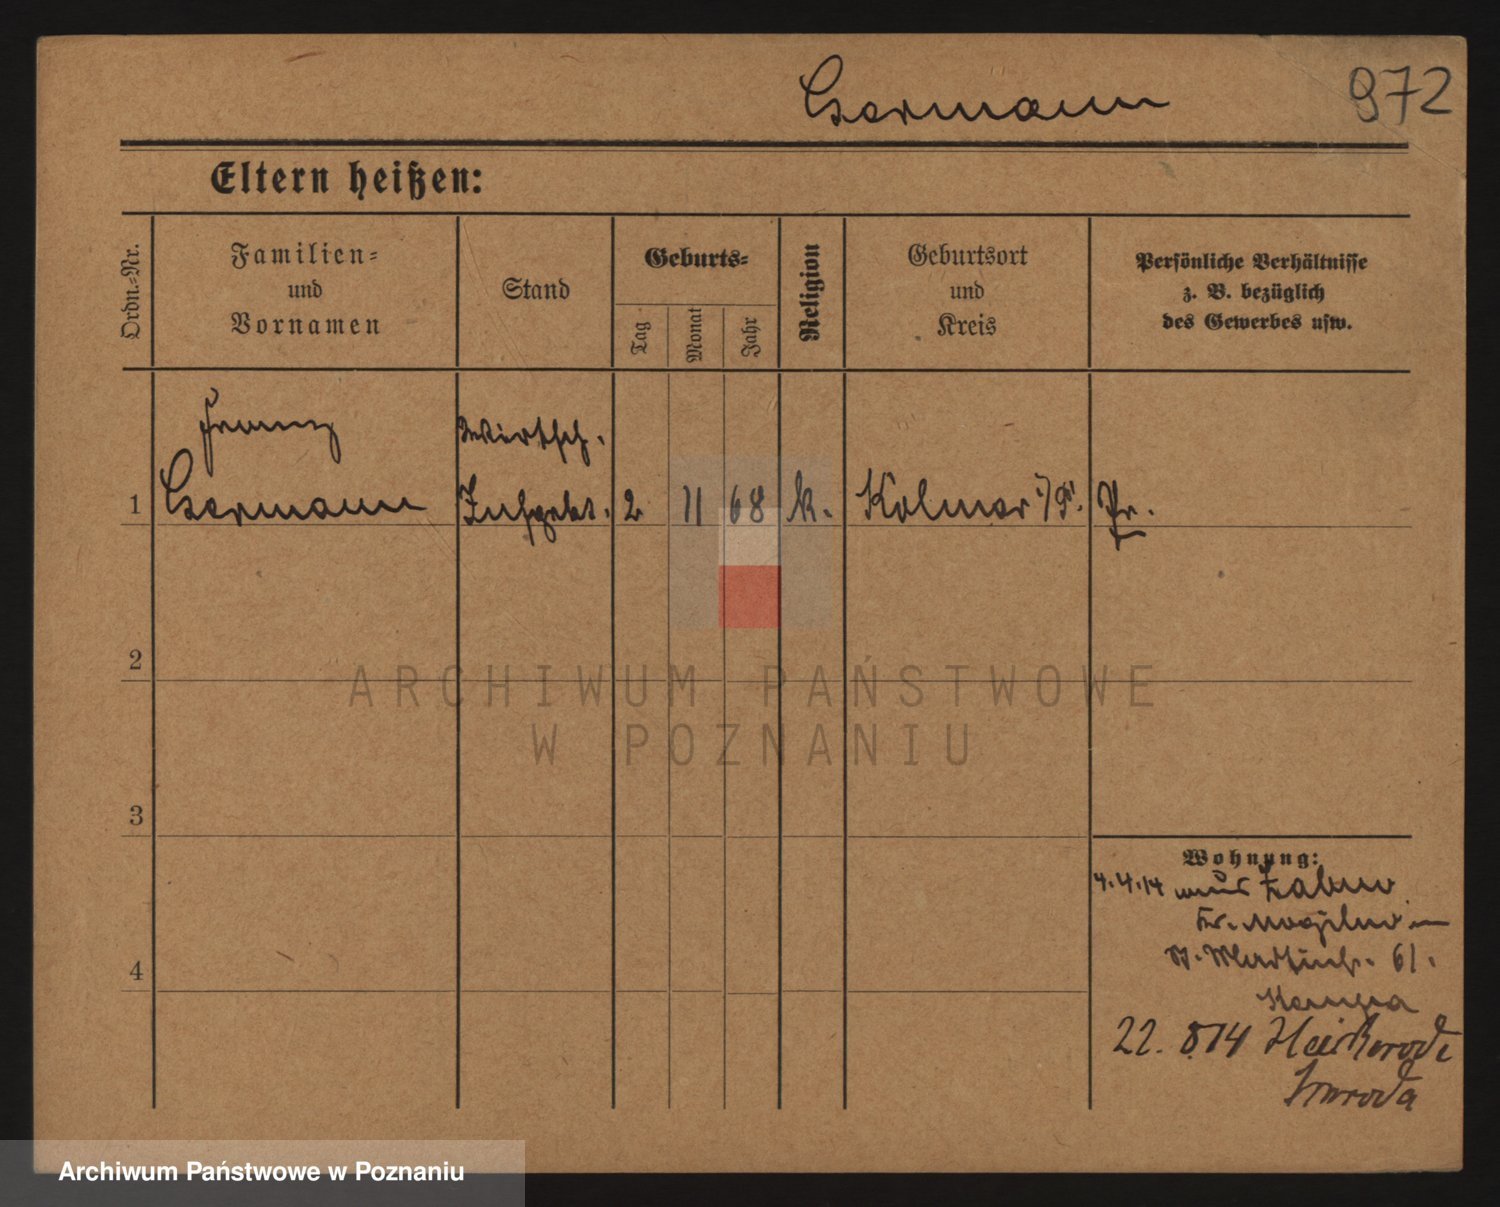 Germann
972
Eltern heißen:
Ordn.-Nr.
Familien-
und
Vornamen
Stand
Geburts-
Tag
Monat
Jahr
Religion
Geburtsort
und
Kreis
Persönliche Verhältnisse
z. B. bezüglich
des Gewerbes usw.
Franz
Wirtsch.
1 Germann Inspekt. 2 11 68 k. Kolmar i/P. Pr.
2
ARCHIWUM PAŃSTWOWE
W POZNANIU
3
Wohnung:
4.4.14 aus
Kr. Mogilno
St. Martinstr. 61.
4
22. 8 14
Archiwum Państwowe w Poznaniu